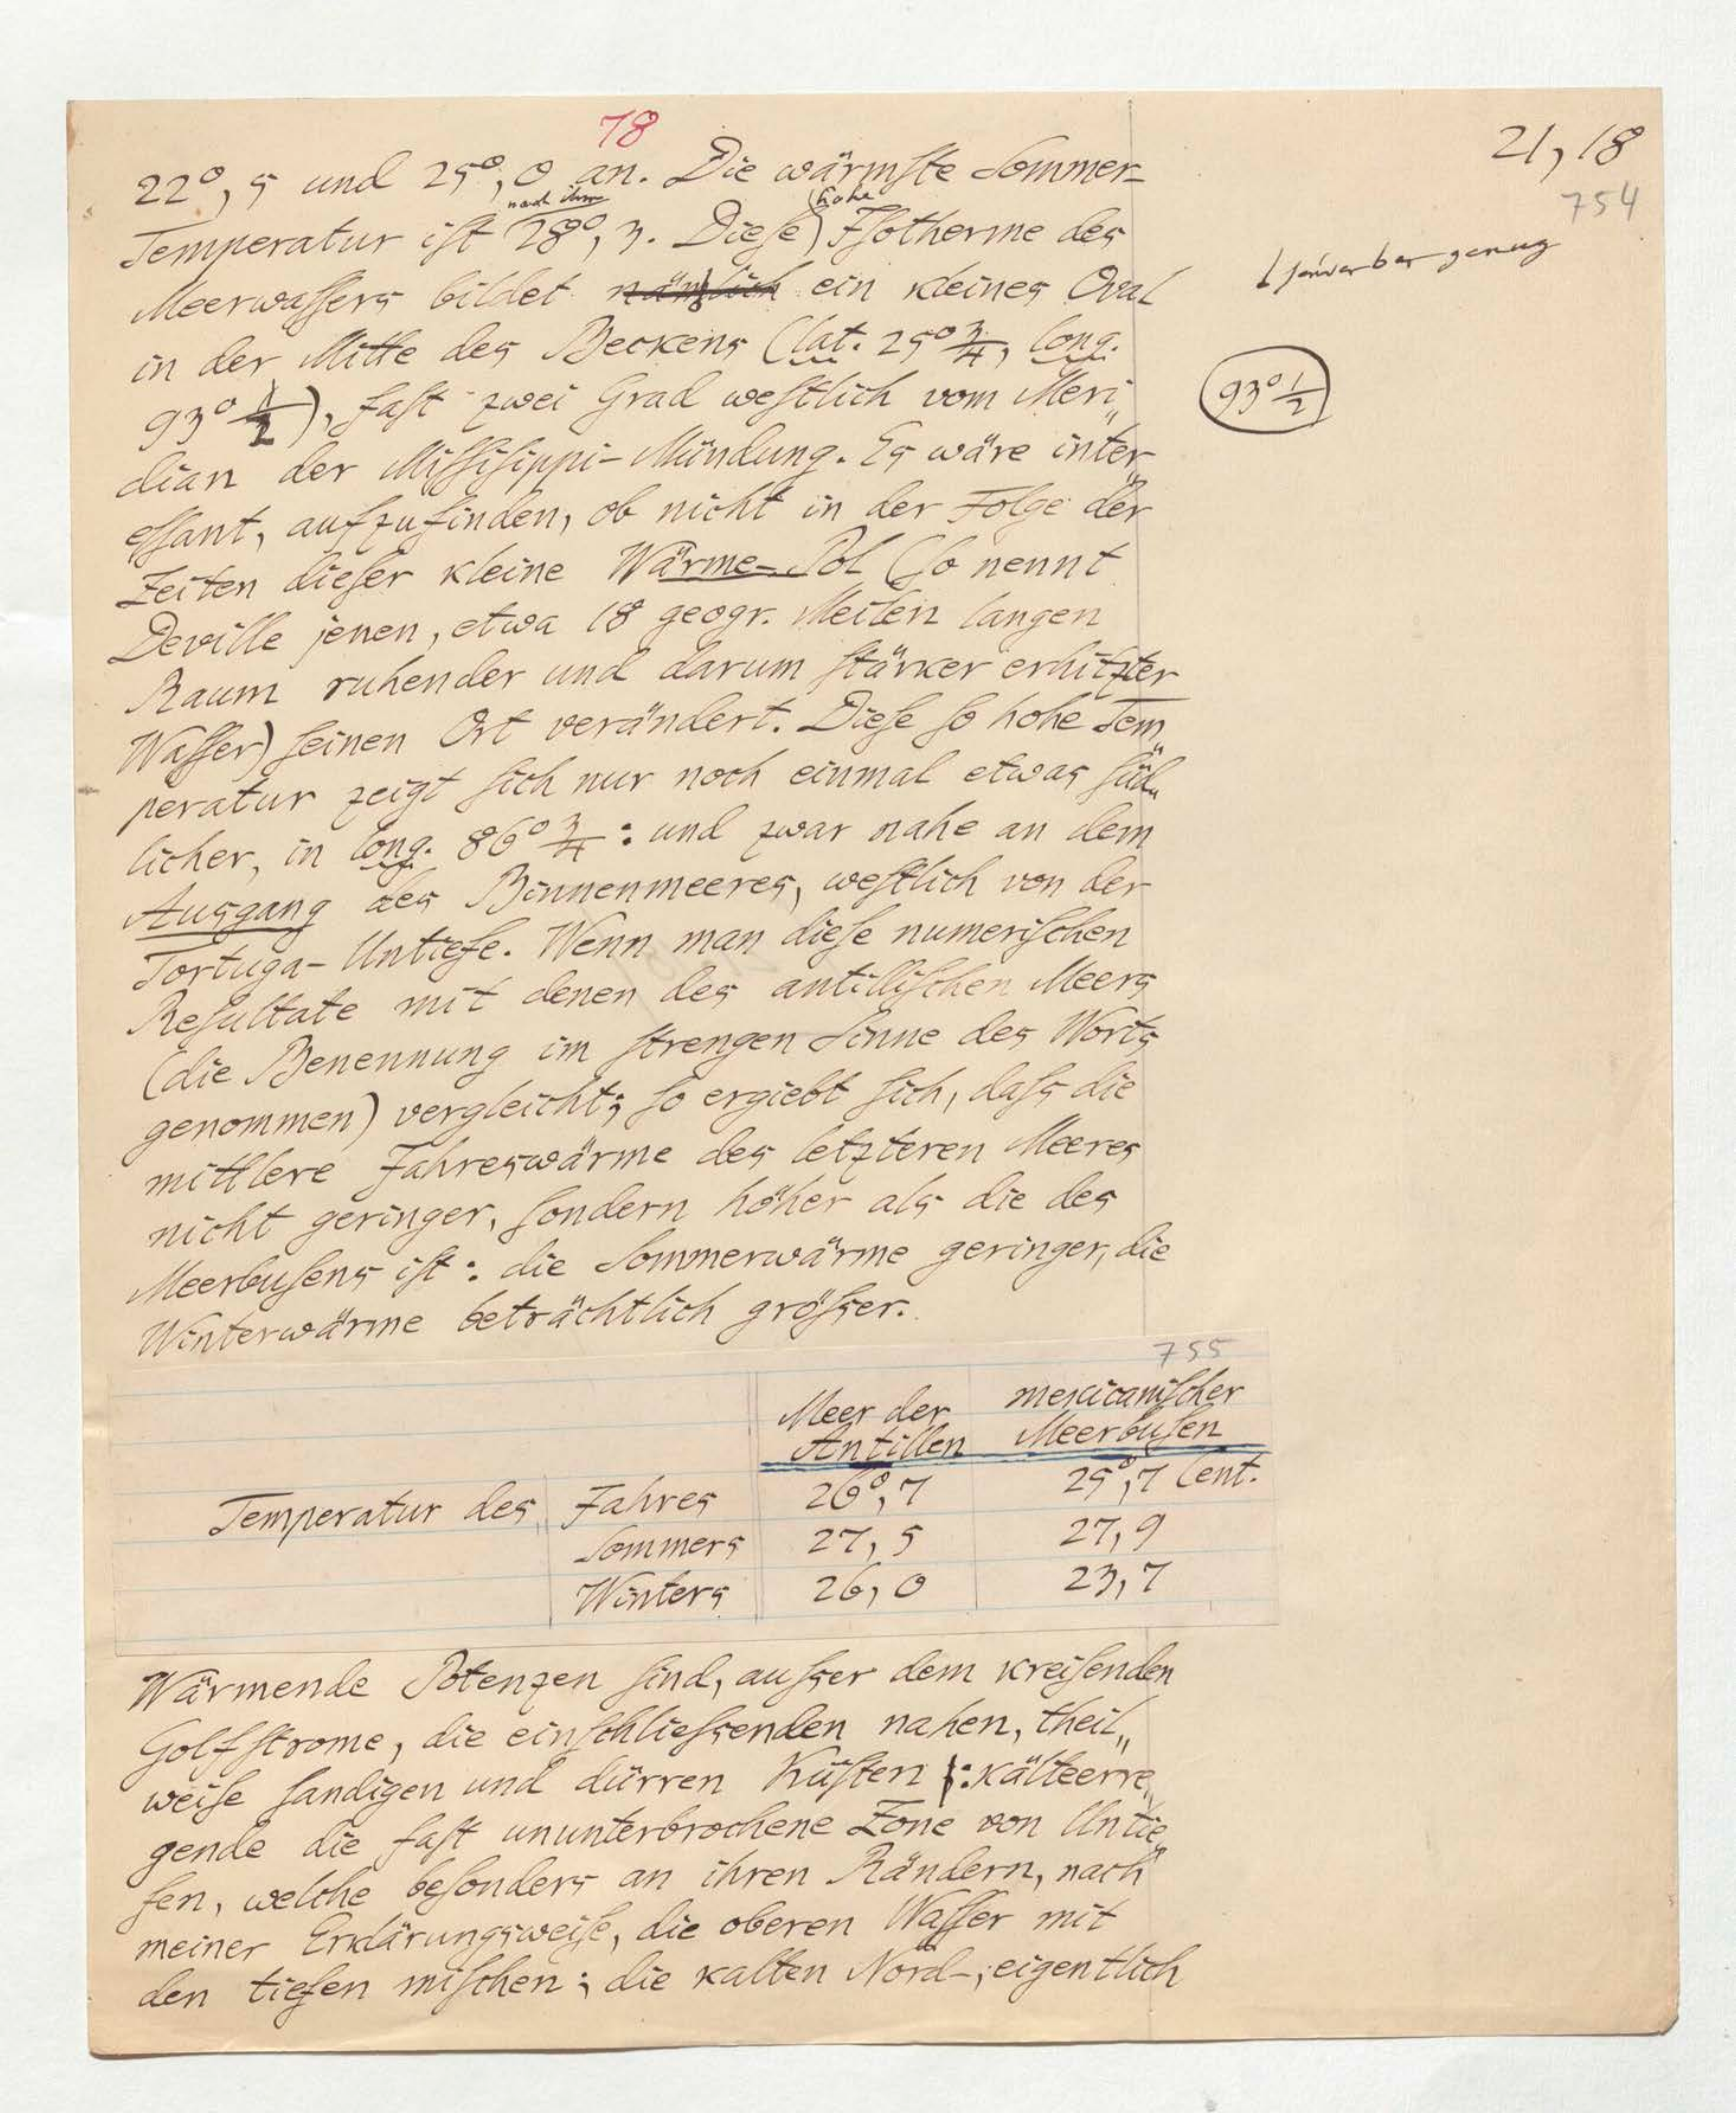 78
21,18
754
22°,5 und 25°,0 an. Die wärmſte Sommer-
nach ihm
hohe
Temperatur iſt 28°,3. Dieſe Iſotherme des
Meerwaſſers bildet nämlich ein kleines Oval
in der Mitte des Beckens (lat. 25° 3/4, long.
93° 1/2), faſt zwei Grad weſtlich vom Meri„
93° 1/2
dian der Miſſiſippi-Mündung. Es wäre inter„
eſſant, aufzufinden, ob nicht in der Folge der
Zeiten dieſer kleine Wärme-Pol (ſo nennt
Deville jenen, etwa 18 geogr. Meilen langen
Raum ruhender und darum ſtärker erhitzter
Waſſer) ſeinen Ort verändert. Dieſe ſo hohe Tem„
peratur zeigt ſich nur noch einmal etwas ſüd„
licher, in long. 86° 3/4: und zwar nahe an dem
Ausgang des Binnenmeeres, weſtlich von der
Tortuga-Untiefe. Wenn man dieſe numeriſchen
Reſultate mit denen des antilliſchen Meers
(die Benennung im ſtrengen Sinne des Worts
genommen) vergleicht; ſo ergiebt ſich, daſs die
mittlere Jahreswärme des letzteren Meeres
nicht geringer, ſondern höher als die des
Meerbuſens iſt: die Sommerwärme geringer, die
Winterwärme beträchtlich gröſser.
755
Meer der Antillen mexicaniſcher Meerbuſen
Temperatur des Jahres 26°,7 25°,7 Cent.
Sommers 27,5 27,9
Winters 26,0 23,7
Wärmende Potenzen ſind, auſser dem kreiſenden
Golfſtrome, die einſchlieſsenden nahen, theil„
weiſe ſandigen und dürren Küſten: kälteerre„
gende die faſt ununterbrochene Zone von Untie„
fen, welche beſonders an ihren Rändern, nach
meiner Erklärungsweiſe, die oberen Waſſer mit
den tiefen miſchen; die kalten Nord-, eigentlich